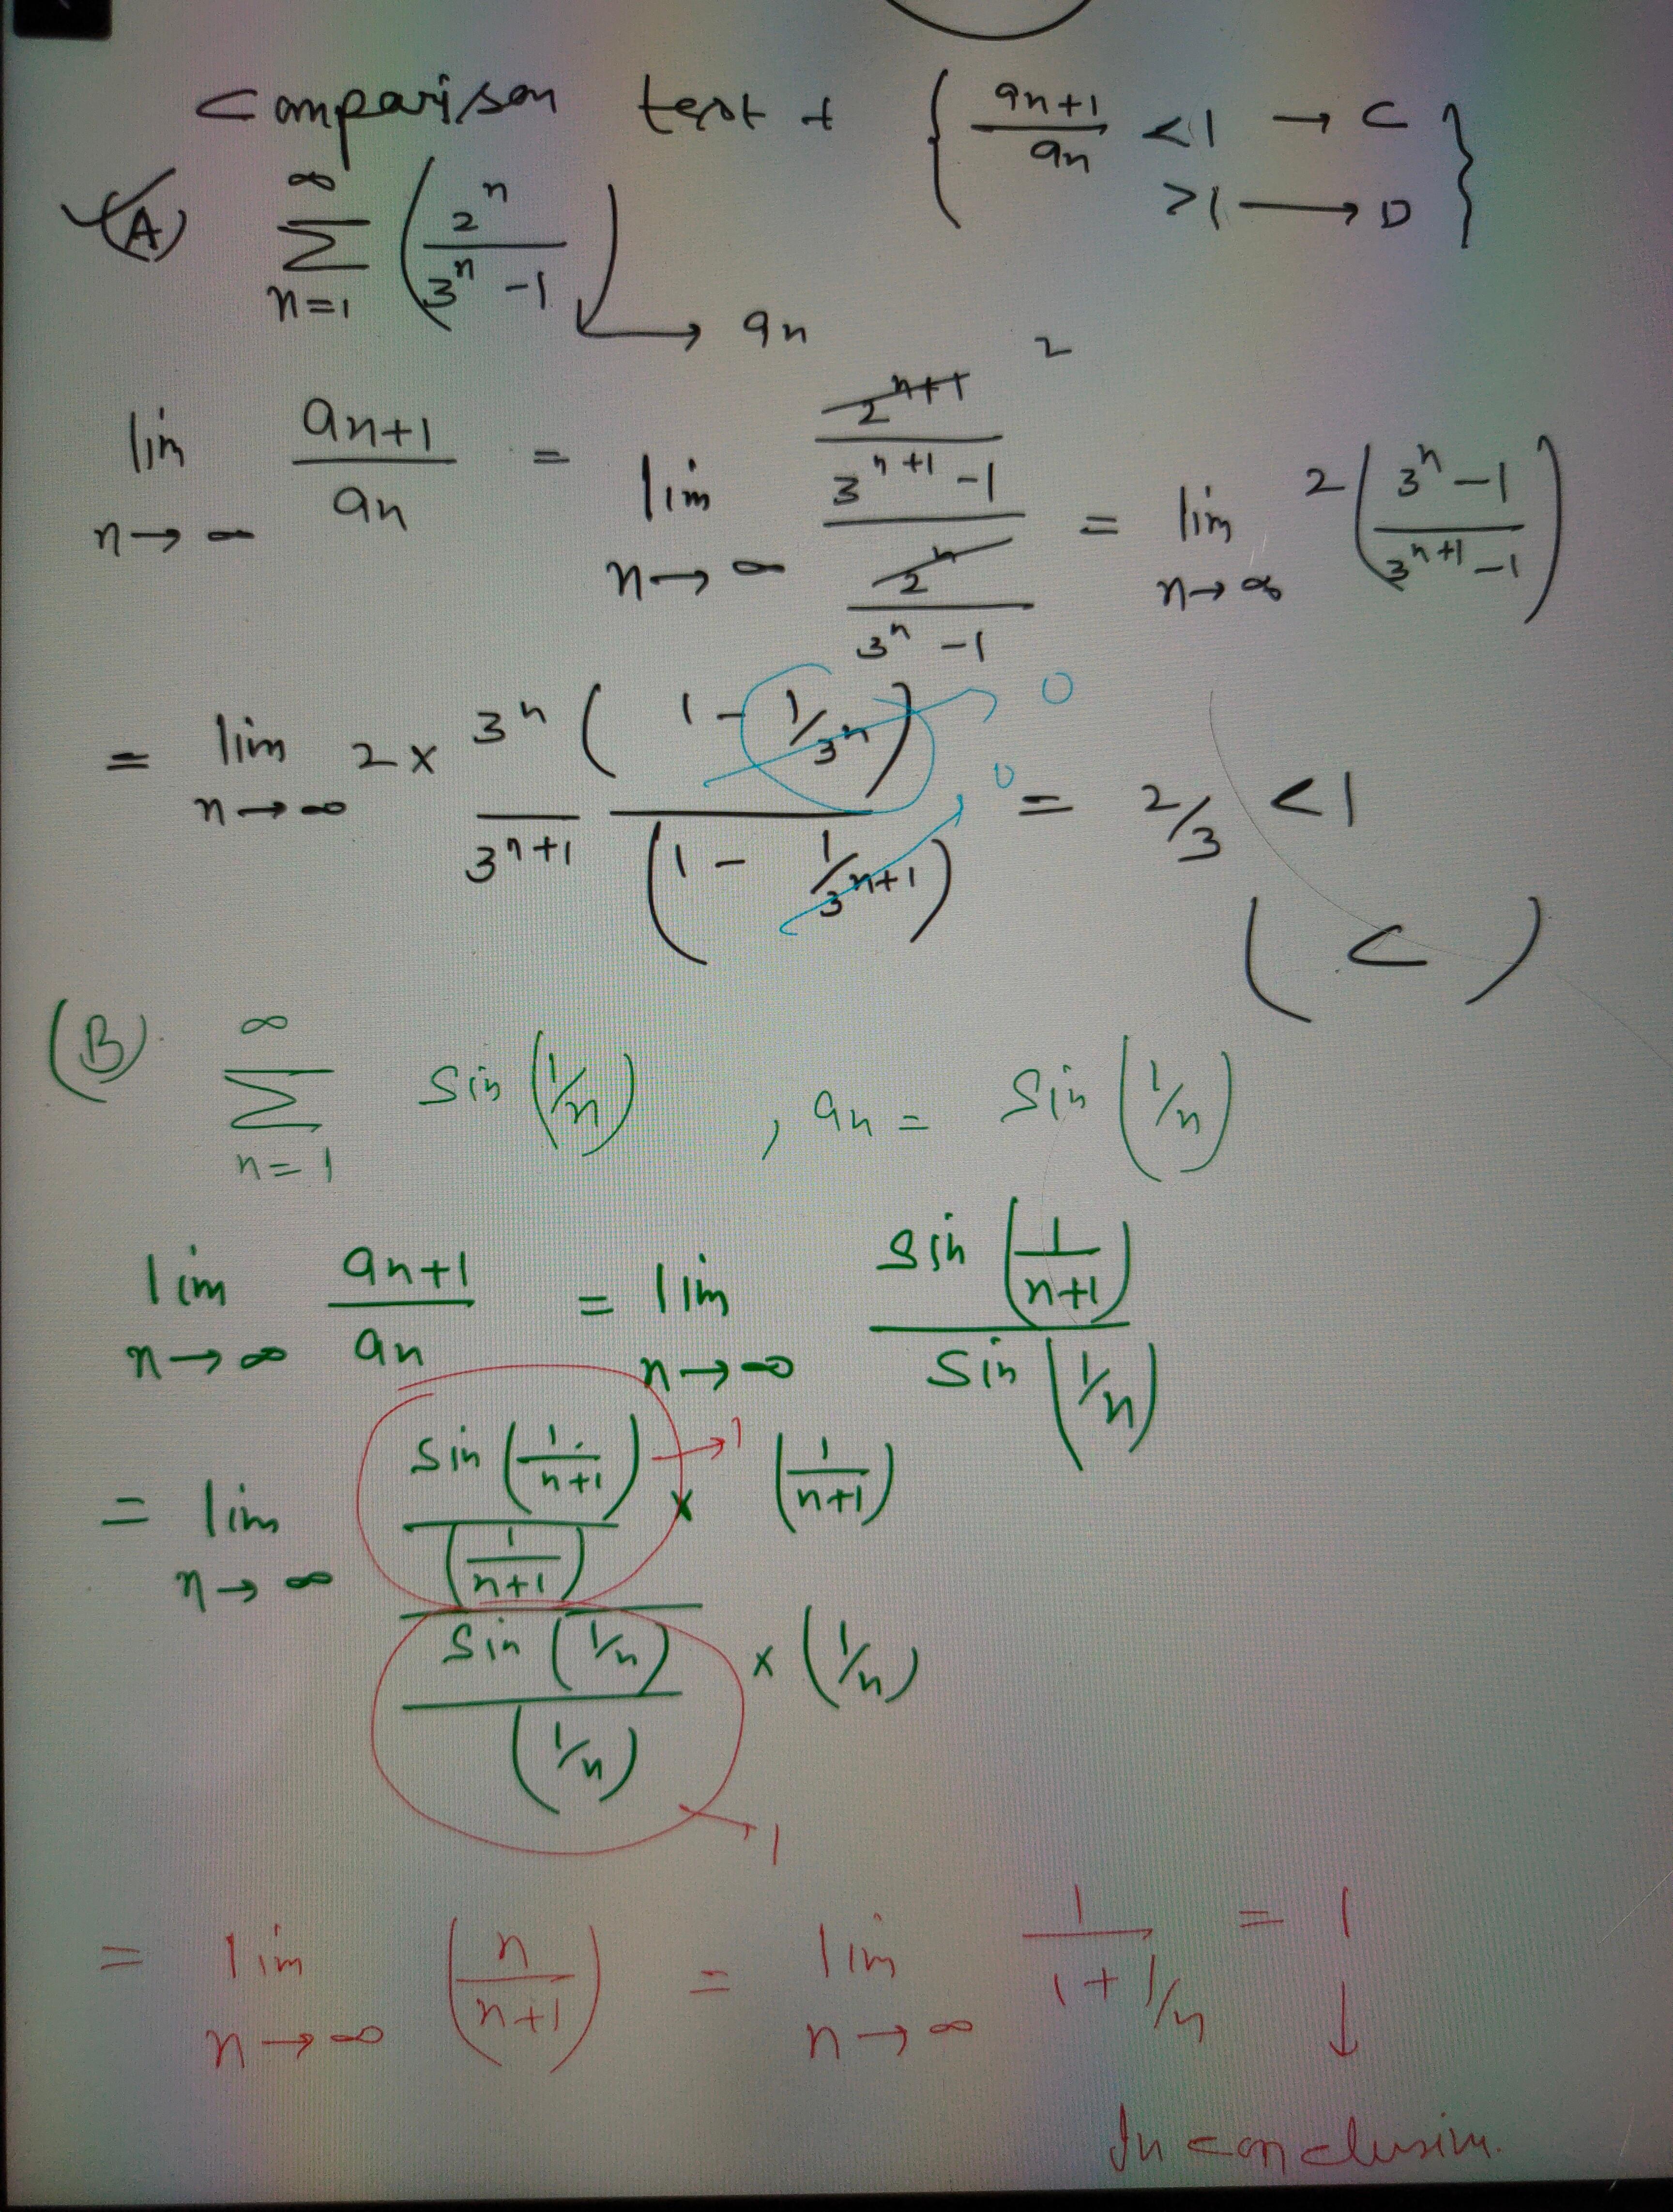 Comparison test + { an+1/an <1 → C
>1 → D }
(A) ∞ Σ n=1 (2^n / 3^n - 1) → an
lim n→∞ an+1/an = lim n→∞ (2^n+1 / 3^n+1 - 1) / (2^n / 3^n - 1) 2 = lim n→∞ 2 (3^n - 1 / 3^n+1 - 1)
= lim n→∞ 2 × 3^n/3^n+1 (1 - 1/3^n) → 0 / (1 - 1/3^n+1) → 0 = 2/3 < 1
(C)
(B) ∞ Σ n=1 Sin (1/n) , an = Sin (1/n)
lim n→∞ an+1/an = lim n→∞ Sin (1/n+1) / Sin (1/n)
= lim n→∞ [Sin (1/n+1) / (1/n+1)] → 1 × (1/n+1) / [Sin (1/n) / (1/n)] → 1 × (1/n)
= lim n→∞ (n/n+1) = lim n→∞ 1/(1 + 1/n) = 1
↓
In conclusive.